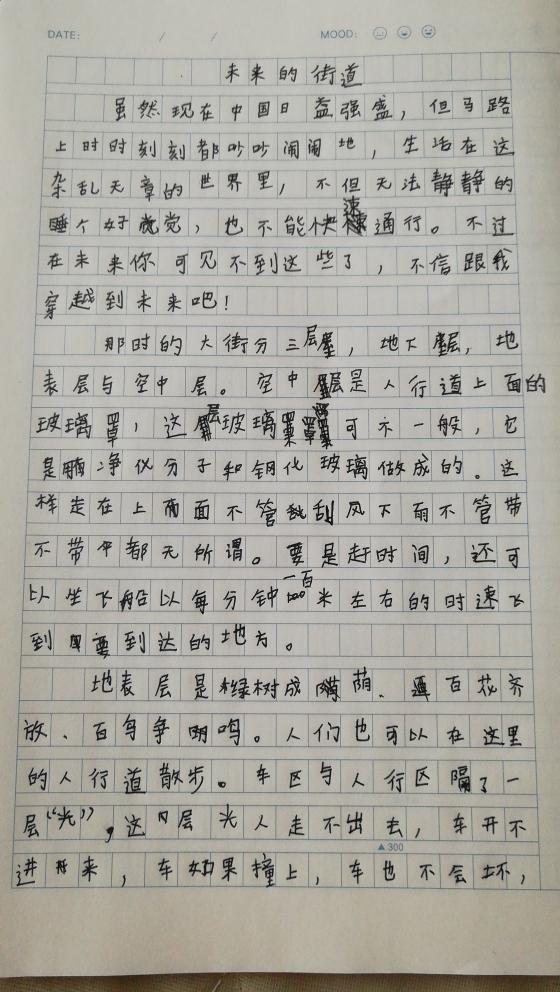 DATE: / / MOOD:
未来的街道
虽然现在中国日益强盛，但马路
上时时刻刻都吵吵闹闹地，生活在这
杂乱无章的世界里，不但无法静静的
睡个好觉，也不能快速通行。不过
在未来你可见不到这些了，不信跟我
穿越到未来吧！
那时的大街分三层，地下层，地
表层与空中层。空中层是人行道上面的
玻璃罩，这层玻璃罩可不一般，它
是用净化分子和钢化玻璃做成的。这
样走在上面不管刮风下雨不管带
不带伞都无所谓。要是赶时间，还可
以坐飞船以每分钟一百米左右的时速飞
到要到达的地方。
地表层是绿树成荫、百花齐
放、百鸟争鸣。人们也可以在这里
的人行道散步。车区与人行区隔了一
层“光”，这层光人走不出去，车开不
▲300
进来，车如果撞上，车也不会坏，